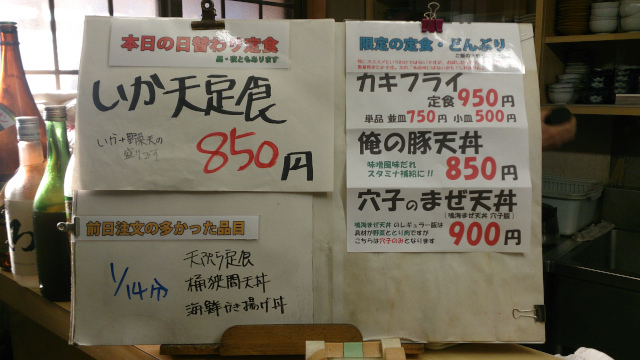 本日の日替わり定食
昼・夜ともあります
いか天定食
いか+野菜天の
盛り合せ
850円
前日注文の多かった品目
1/14分
天ぷら定食
桶狭間天丼
海鮮かき揚げ丼
限定の定食・どんぶり
カキフライ
定食 950円
単品 並皿 750円 小皿 500円
俺の豚天丼
味噌風味だれ
スタミナ補給に!!
850円
穴子のまぜ天丼
(鳴海まぜ天丼 穴子版)
鳴海まぜ天丼 のレギュラー版は
具材が野菜ととり肉ですが
こちらは穴子のみとなります
900円